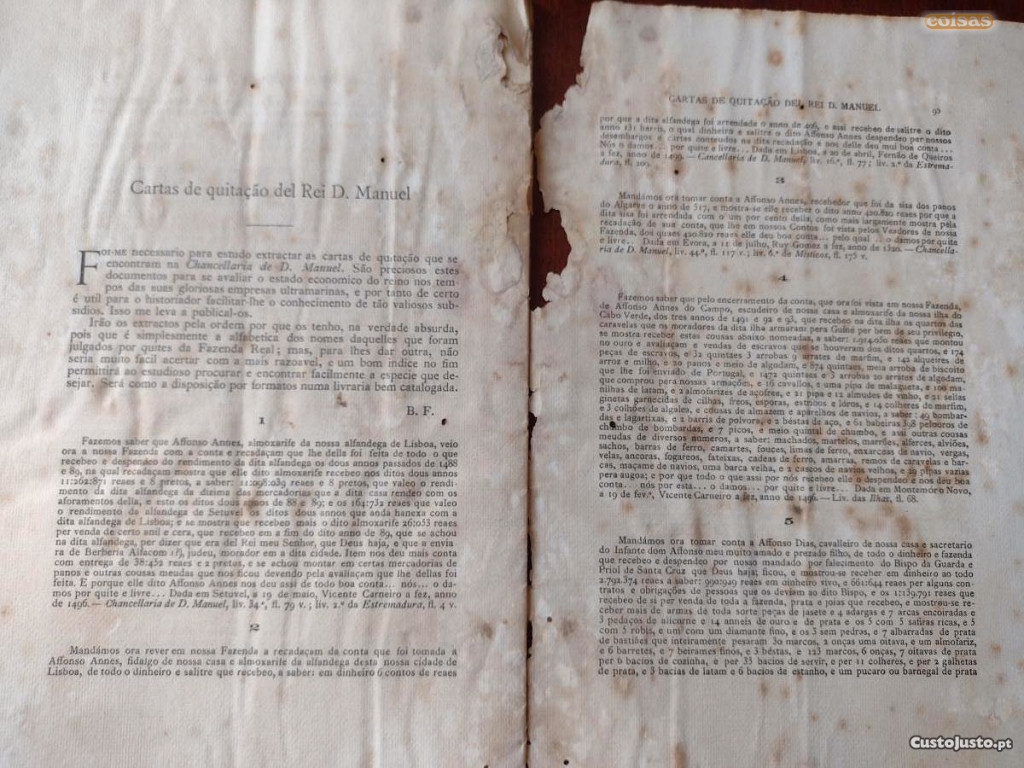 Cartas de quitação del Rei D. Manuel
FOI-ME necessario para estudo extractar as cartas de quitação que se
encontram na Chancellaria de D. Manuel. São preciosos estes
documentos para se avaliar o estado economico do reino nos tem-
pos das suas gloriosas empresas ultramarinas, e por tanto de certo
é util para o historiador facilitar-lhe o conhecimento de tão valiosos sub-
sidios. Isso me leva a publical-os.
Irão os extractos pela ordem por que os tenho, na verdade absurda,
pois que é simplesmente a alfabetica dos nomes daquelles que foram
julgados por quites da Fazenda Real; mas, para lhes dar outra, não
seria muito facil acertar com a mais razoavel, e um bom indice no fim
permittirá ao estudioso procurar e encontrar facilmente a especie que de-
sejar. Será como a disposição por formatos numa livraria bem catalogada.
B. F.
1
Fazemos saber que Affonso Annes, almoxarife da nossa alfandega de Lisboa, veio
ora a nossa Fazenda com a conta e recadaçam que lhe della foi feita de todo o que
recebeo e despendeo do rendimento da dita alfandega os dous annos passados de 1488
e 89, na qual recadaçam mostra que elle dito almoxarife recebeo nos ditos dous annos
11:262:871 reaes e 8 pretos, a saber: 11:098:039 reaes e 8 pretos, que valeo o rendi-
mento da dita alfandega da dizima das mercadorias que a dita casa rendeo com os
aforamentos della, e esto os ditos dous annos de 88 e 89; e os 164:732 reaes que valeo
o rendimento da alfandega de Setuvel os ditos dous annos que anda hanexa com a
dita alfandega de Lisboa; e se mostra que recebeo mais o dito almoxarife 26:053 reaes
per venda de certo anil e cera, que recebeo em a fim do dito anno de 89, que se achou
na dita alfandega, per dizer que era del Rei meu Senhor, que Deus haja, e que a envia-
ra de Berberia Alfacom (?), judeu, morador em a dita cidade. Item nos deu mais conta
com entrega de 38:452 reaes e 2 pretos, e se achou montar em certas mercadorias de
panos e outras cousas meudas que nos ficou devendo pela avaliaçam que lhe dellas foi
feita. E porque elle dito Affonso Annes nos deu assi de todo boa conta... nós... o da-
mos por quite e livre... Dada em Setuvel, a 19 de maio, Vicente Carneiro a fez, anno
de 1496. — Chancellaria de D. Manuel, liv. 34.º, fl. 79 v.; liv. 2.º da Estremadura, fl. 4 v.
2
Mandámos ora rever em nossa Fazenda a recadaçam da conta que foi tomada a
Affonso Annes, fidalgo de nossa casa e almoxarife da alfandega desta nossa cidade de
Lisboa, de todo o dinheiro e salitre que recebeo, a saber: em dinheiro 6 contos de reaes
CARTAS DE QUITAÇÃO DEL REI D. MANUEL 95
por que a dita alfandega foi arrendada o anno de 496, e assi recebeo de salitre o dito
anno 131 barris, o qual dinheiro e salitre o dito Affonso Annes despendeo per nossos
desembargos e cartas conteudos na dita recadação e nos delle deu mui boa conta...
Nós o damos... por quite e livre... Dada em Lisboa, a 20 de abril, Fernão de Queiros
a fez, anno de 1499. — Cancellaria de D. Manuel, liv. 16.º, fl. 77; liv. 2.º da Estrema-
dura, fl. 20
Mandámos ora tomar conta a Affonso Annes, recebedor que foi da sisa dos panos
do Algarve o anno de 517, e mostra-se elle receber o dito anno 420.820 reaes por que a
dita sisa foi arrendada com o um por cento della, como mais largamente mostra pela
recadação de sua conta, que lhe em nossos Contos foi vista pelos Veadores de nossa
Fazenda, dos quaes 420.820 reaes elle deu boa conta... pelo qual... o damos por quite
e livre... Dada em Evora, a 11 de julho, Ruy Gomez a fez, anno de 1520. — Chancella-
ria de D. Manuel, liv. 44.º, fl. 117 v.; liv. 6.º de Misticos, fl. 175 v.
4
Fazemos saber que pelo encerramento da conta, que ora foi vista em nossa Fazenda,
de Affonso Annes do Campo, escudeiro de nossa casa e almoxarife da nossa ilha do
Cabo Verde, dos tres annos de 1491 e 92 e 93, que recebeo na dita ilha os quartos das
caravelas que os moradores da dita ilha armaram pera Guiné per bem de seu privilegio,
se mostra receber estas cousas abaixo nomeadas, a saber: 1.914.030 reaes que montou
no ouro e avaliaçam e vendas de escravos que se houveram dos ditos quartos, e 174
peças de escravos, e 32 quintaes 3 arrobas 9 arrates de marfim, e 142 alqueires de
arroz e milho, e 20 panos e meio de algodam, e 874 quintaes, meia arroba de biscoito
que lhe foi enviado de Portugal, e 1472 quintaes e 3 arrobas 20 arrates de algodam,
que comprou pera nossas armações, e 16 cavallos, e uma pipa de malagueta, e 100 ma-
nilhas de latam, e 2 almofarizes de açofrez, e 21 pipa e 12 almudes de vinho, e 21 sellas
ginetas garnecidas de cilhas, freos, esporas, estribos e loros, e 14 colheres de marfim,
e 3 colhões de algales, e cousas de almazem e aparelhos de navios, a saber: 49 bombar-
das e lagartixas, e 2 barris de polvora, e 2 béstas de aço, e 61 bahares 3,8 pelouros de
chumbo de bombardas, e 7 picos, e meio quintal de chumbo, e assi outras cousas
meudas de diversos numeros, a saber: machados, martelos, marrões, alferces, alviões,
sachos, barras de ferro, camartes, fouces, limas de ferro, enxarceas de navio, vergas,
velas, ancoras, fogareos, fateixas, cadeas de ferro, amarras, remos de caravelas e bar-
cas, maçame de navios, uma barca velha, e 2 cascos de navios velhos, e 29 pipas vazias
pera augoa; e por que todo o que assi por nós recebeo elle a despendeo e nos deu boa
conta... nós por esta ... o damos... por quite e livre... Dada em Montemór o Novo,
a 19 de fev.º, Vicente Carneiro a fez, anno de 1496. — Liv. das Ilhas, fl. 68.
5
Mandámos ora tomar conta a Affonso Dias, cavalleiro de nossa casa e secretario
do Infante dom Affonso meu muito amado e prezado filho, de todo o dinheiro e fazenda
que recebeo e despendeo por nosso mandado por falecimento do Bispo da Guarda e
Priol de Santa Cruz que Deus haja; ficou, e mostrou-se receber em dinheiro ao todo
2.792.374 reaes a saber: 990:929 reaes em dinheiro vivo, e 661:644 reaes per alguns con-
tratos e obrigações de pessoas que os deviam ao dito Bispo, e os 1:139.791 reaes que
recebeo de si per venda de toda a fazenda, prata e joias que recebeo, e mostrou-se re-
ceber mais de armas de toda sorte peças de jasete e 4 adargas e 7 arcas encoiradas e
3 pedaços de alicorne e 14 anneis de ouro e de prata e os 5 com 5 safiras ricas, e 5
com 5 robis, e um com um diamante fino, e os 3 sem pedras, e 7 albarradas de prata
de bastiães que inteiramente pesaram 30 marcos, 2 onças uma oitava, e um almofariz,
e 6 barretes, e 7 beirames finos, e 3 béstas, e 123 marcos, 6 onças, 7 oitavas de prata
per 6 bacios de cozinha, e per 33 bacios de servir, e per 11 colheres, e per 2 galhetas
de prata, e 3 bacias de latam e 6 bacios de estanho, e um pucaro ou barnegal de prata
coisas
CustoJusto.pt